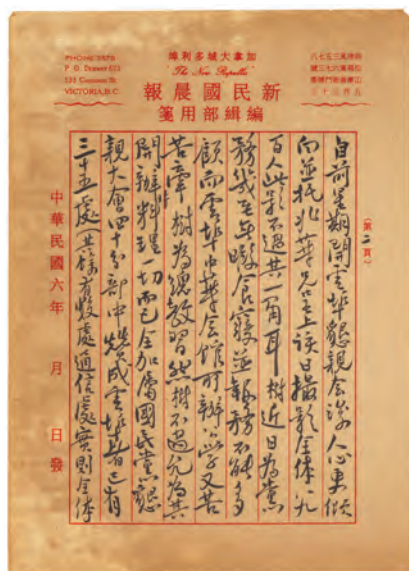 PHONE 5878
P. O. Drawer 621
533 Cormorant St.
VICTORIA, B.C.
加拿大城多利埠
"The New Republic"
新民國晨報
編緝部用箋
(第二頁)
自前星期開雲埠懇親会後人心更傾
向並托北華兄呈上該日撮影全体九
百人此影不過其一角耳樹近日為黨
務幾至午晚食寢並報務不能多
顧而雲埠中華会館所辦學又苦
苦牽樹為總教習然樹不過允為其
開辦料理一切而已全加屬國民黨懇
親大會四十分部中贊成雲埠者已有
三十五處(其餘有數處通信處實則全体
中華民國六年 月 日發